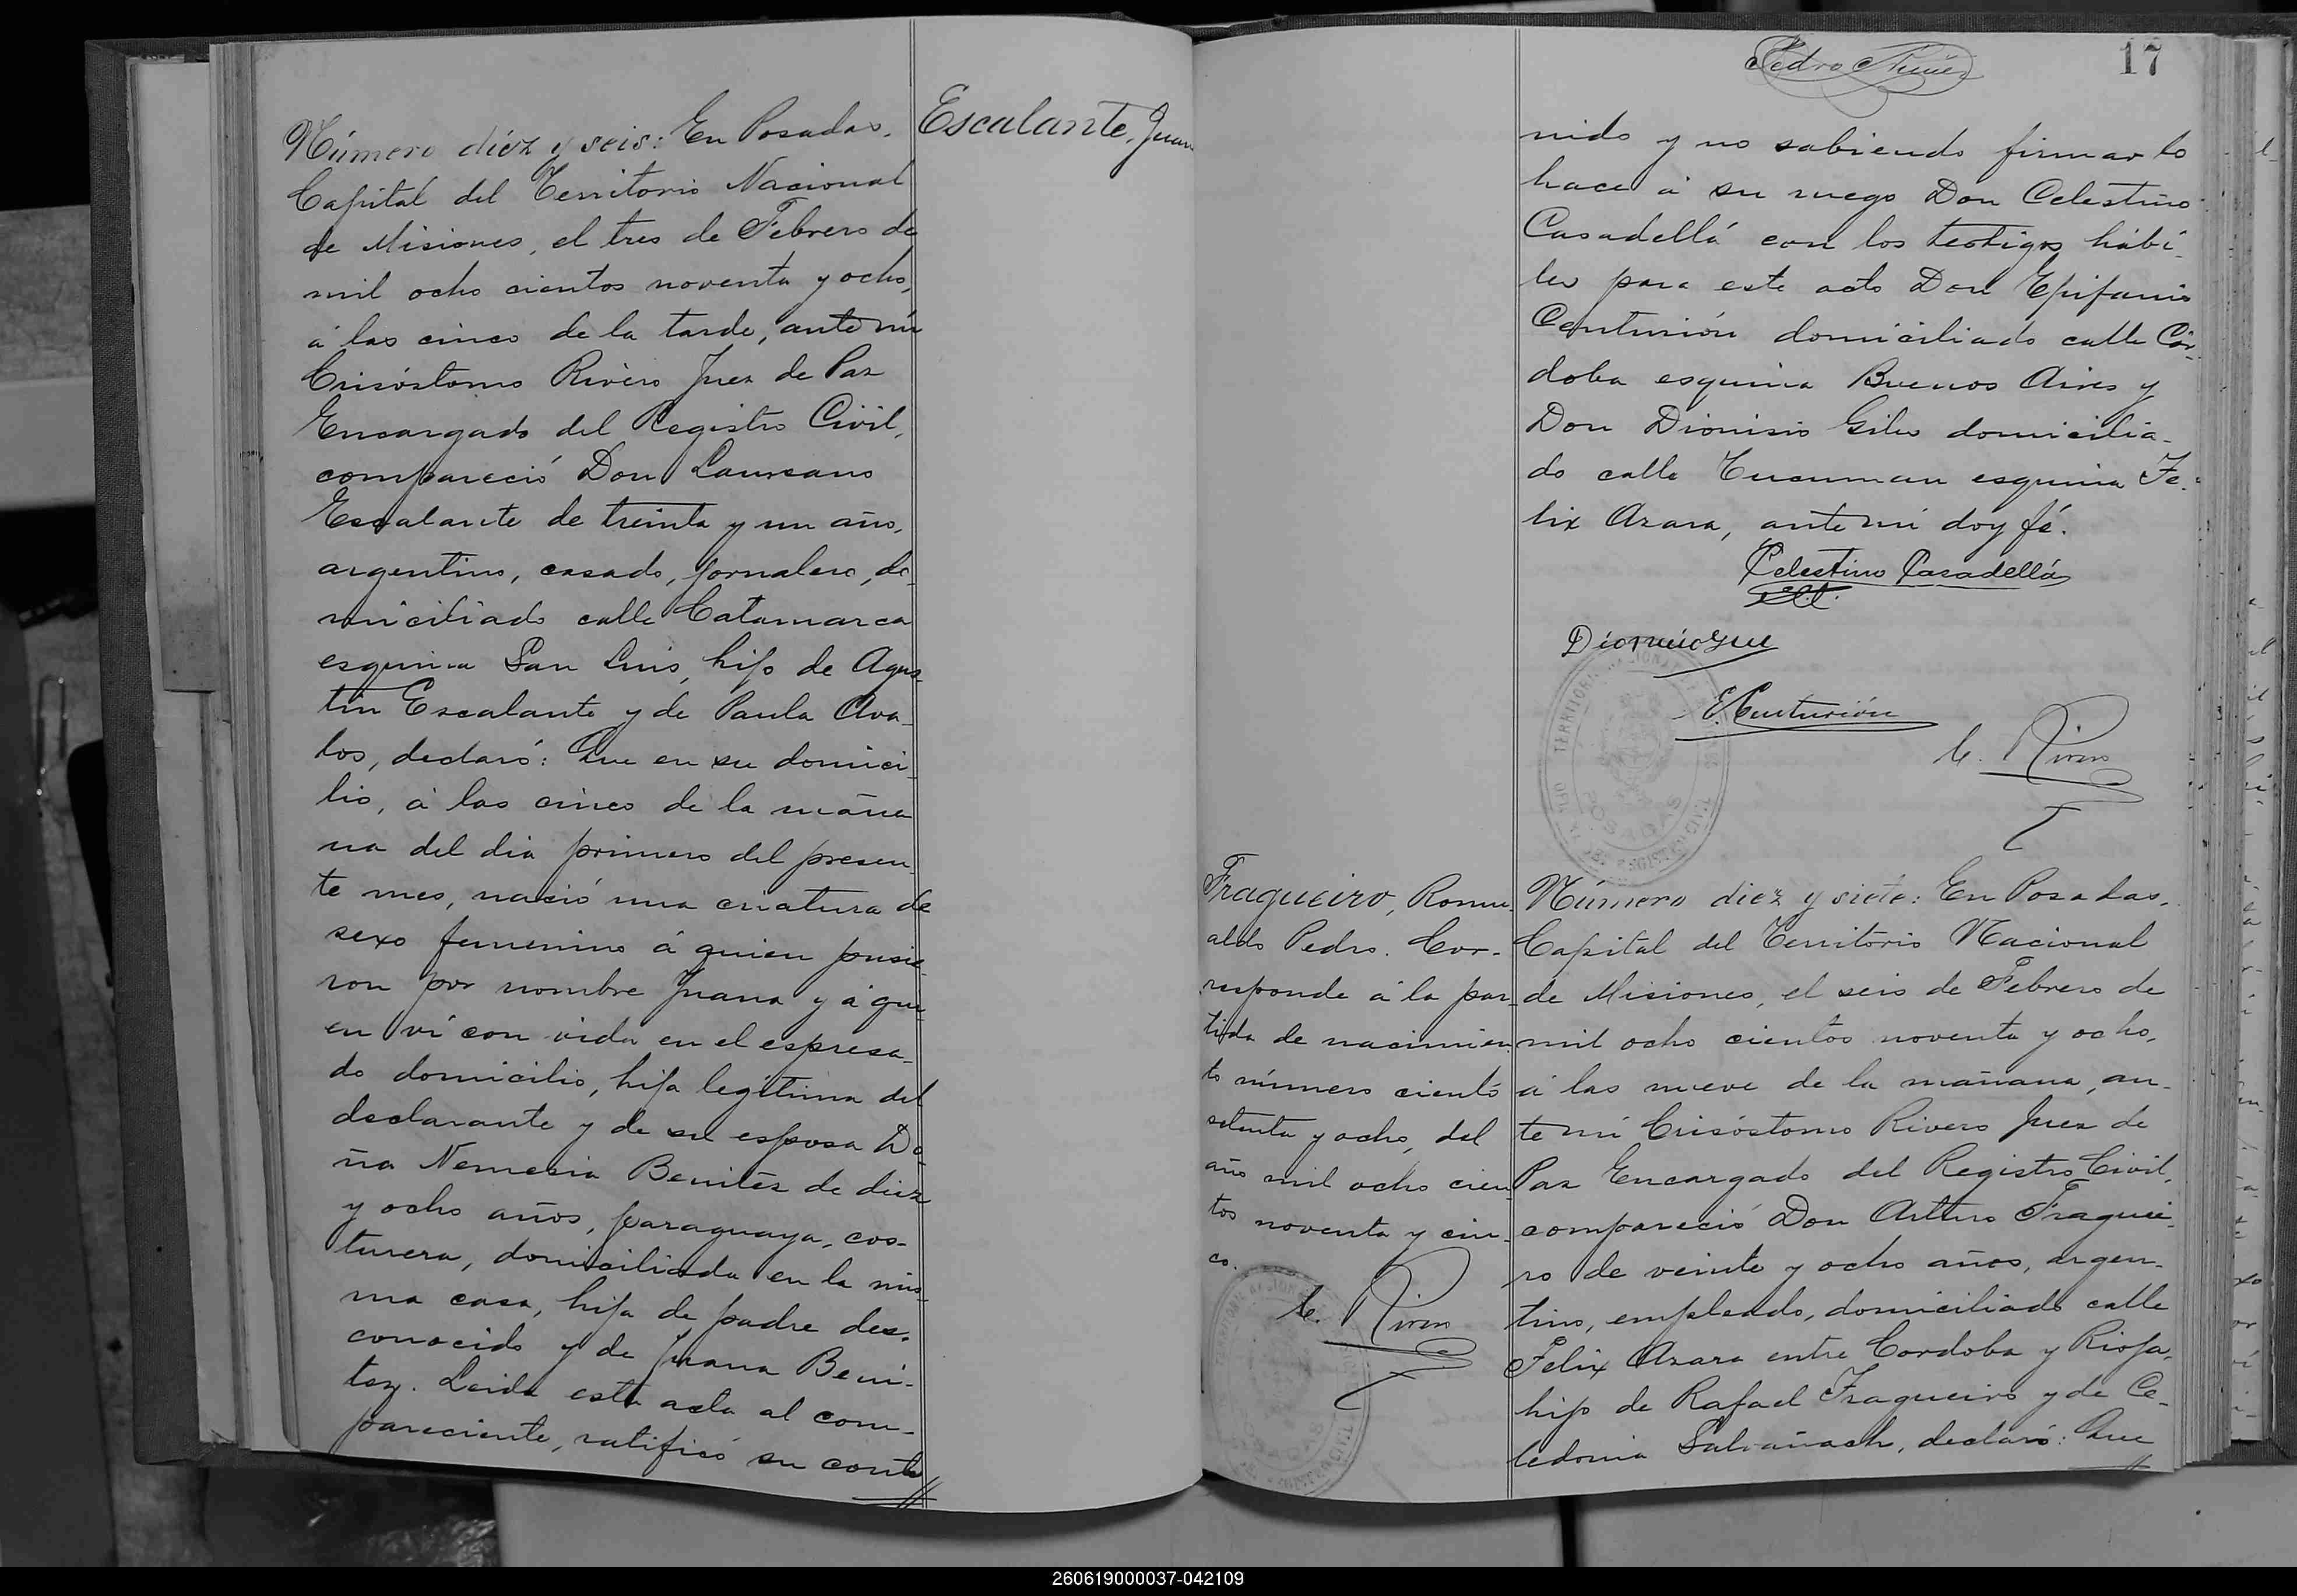 Número diéz y seis: En Posadas,
Capital del Territorio Nacional
de Misiones, el tres de Febrero de
mil ocho cientos noventa y ocho,
á las cinco de la tarde, ante mi
Crisóstomo Rivero Juez de Paz
Encargado del Registro Civil,
compareció Don Laureano
Escalante de treinta y un año,
argentino, casado, jornalero, do-
miciliado calle Catamarca
esquina San Luis, hijo de Agus-
tin Escalante y de Paula Ava-
los, declaró: Que en su domici-
lio, á las cinco de la maña-
na del dia primero del presen-
te mes, nació una criatura de
sexo femenino á quien pusie-
ron por nombre Juana y á qui-
en ví con vida en el espresa-
do domicilio, hija legítima del
declarante y de su esposa Do-
ña Nemesia Benitez de diez
y ocho años, paraguaya, cos-
turera, domiciliada en la mis-
ma casa, hija de padre des-
conocido y de Juana Beni-
tez. Leida esta acta al com-
pareciente, ratificó su conte
Escalante, Juan
Pedro Nuñez
17
nido y no sabiendo firmar lo
hace á su ruego Don Celestino
Casadellá con los testigos hábi-
les para este acto Don Epifanio
Centurión domiciliado calle Cór-
doba esquina Buenos Aires y
Don Dionisio Giles domicilia-
do calle Tucuman esquina Fe-
lix Azara, ante mi doy fé.
Celestino Casadellá
E. Centurión
C. Rivero
POSADAS
Fragueiro, Romu-
aldo Pedro. Cor-
responde á la par-
tida de nacimien-
to número ciento
setenta y ocho, del
año mil ocho cien-
tos noventa y cin-
co.
C. Rivero
Número diez y siete: En Posadas,
Capital del Territorio Nacional
de Misiones, el seis de Febrero de
mil ocho cientos noventa y ocho,
á las nueve de la mañana, an-
te mí Crisóstomo Rivero Juez de
Paz Encargado del Registro Civil,
compareció Don Arturo Fraguei-
ro de veinte y ocho años, argen-
tino, empleado, domiciliado calle
Felix Azara entre Cordoba y Rioja,
hijo de Rafael Fragueiro y de Ce-
ledonia Salvañach, declaró: Que
260619000037-042109